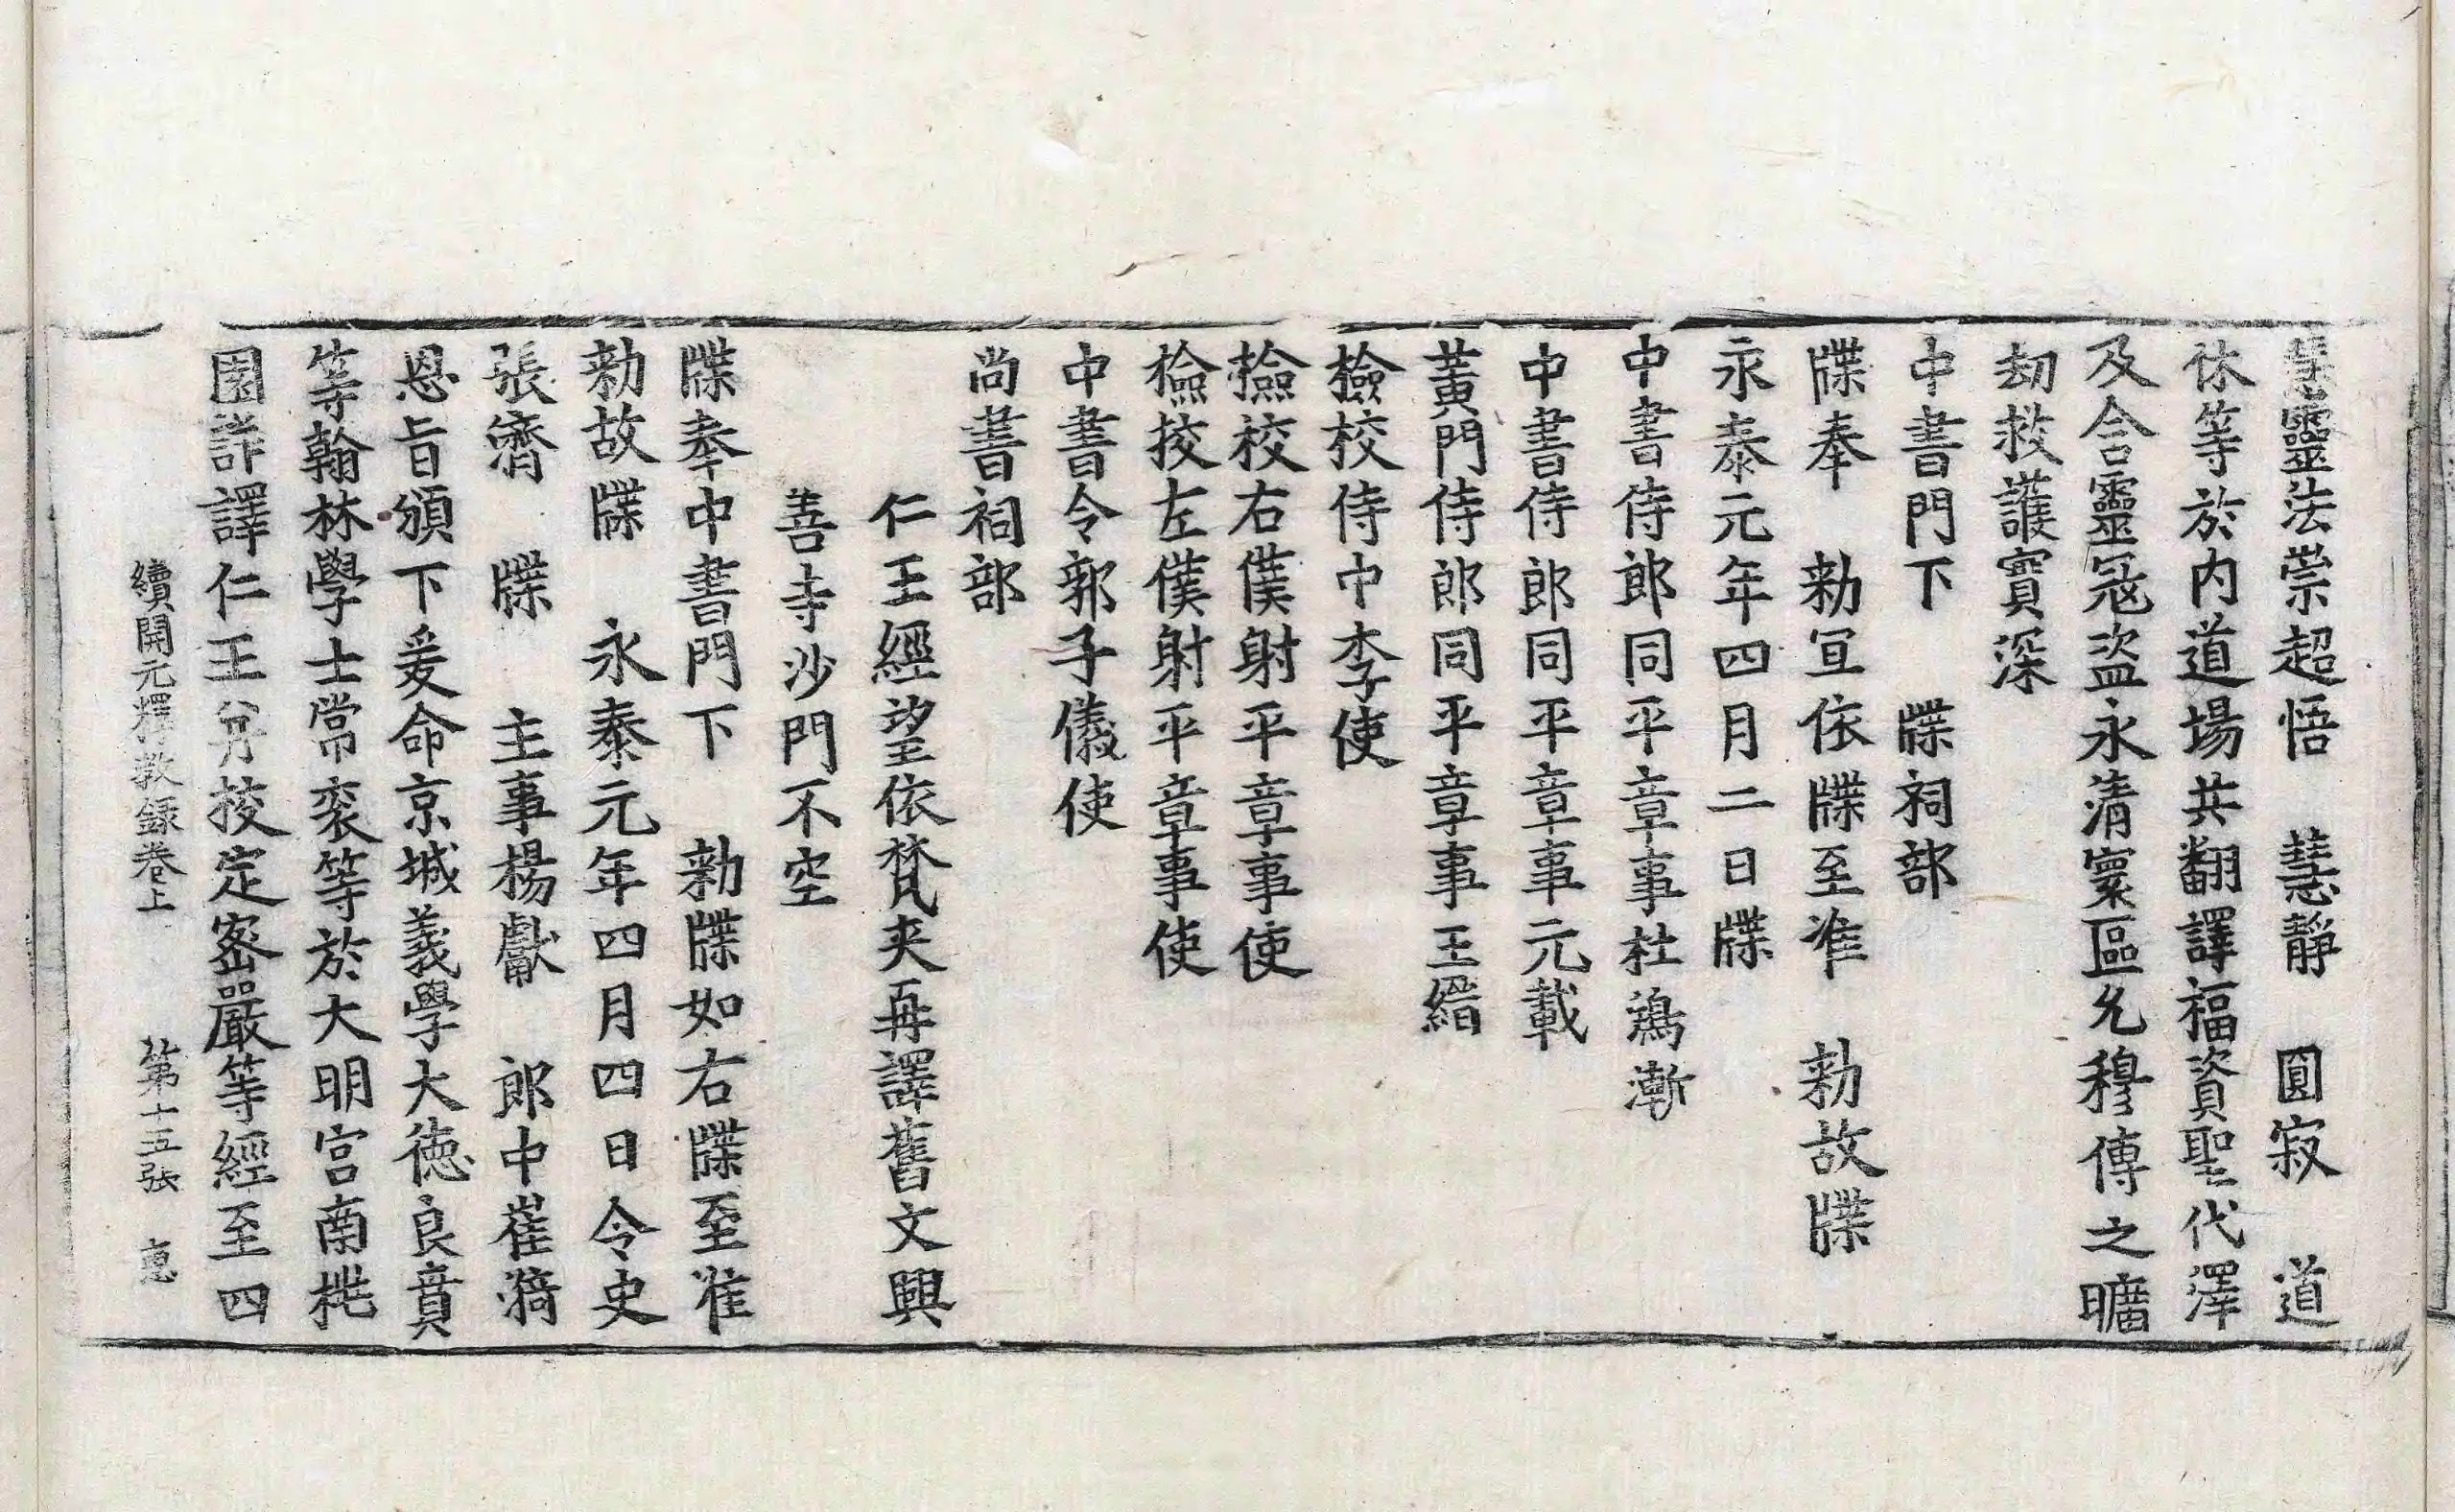 慧靈法崇超悟　慧靜　圓寂　道
林等於内道場共翻譯福資聖代澤
及含靈冦盗永清寰區允穆傳之曠
劫救護實深
中書門下　牒祠部
牒奉　勑宣依牒至准　勑故牒
永泰元年四月二日牒
中書侍郎同平章事杜鴻漸
中書侍郎同平章事元載
黃門侍郎同平章事王縉
檢校侍中李使
撿校右僕射平章事使
撿挍左僕射平章事使
中書令郭子儀使
尚書祠部
仁王經望依梵夾再譯舊文興
善寺沙門不空
牒奉中書門下　勑牒如右牒至准
勑故牒　永泰元年四月四日令史
張濟　牒　主事楊獻　郎中崔漪
恩旨頒下爰命京城義學大德良賁
等翰林學士常衮等於大明宮南桃
園詳譯仁王并挍定密嚴等經至四
續開元釋教録卷上　第十五張　惠